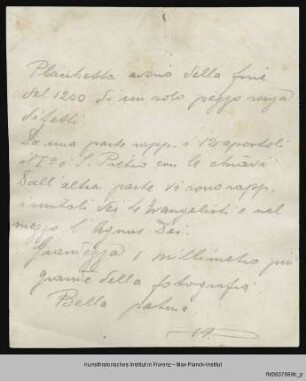 Planchetta avorio della fine
del 1200 di un solo pezzo senza
difetti.
Da una parte rapp. i 12 apostoli
S. Pietro con le chiavi
Dall'altra parte vi sono rapp.
i simboli dei 4 Evangelisti e nel
mezzo l'Agnus Dei.
Grandezza 1 millimetro più
grande della fotografia
Bella patina
Kunsthistorisches Institut in Florenz – Max-Planck-Institut